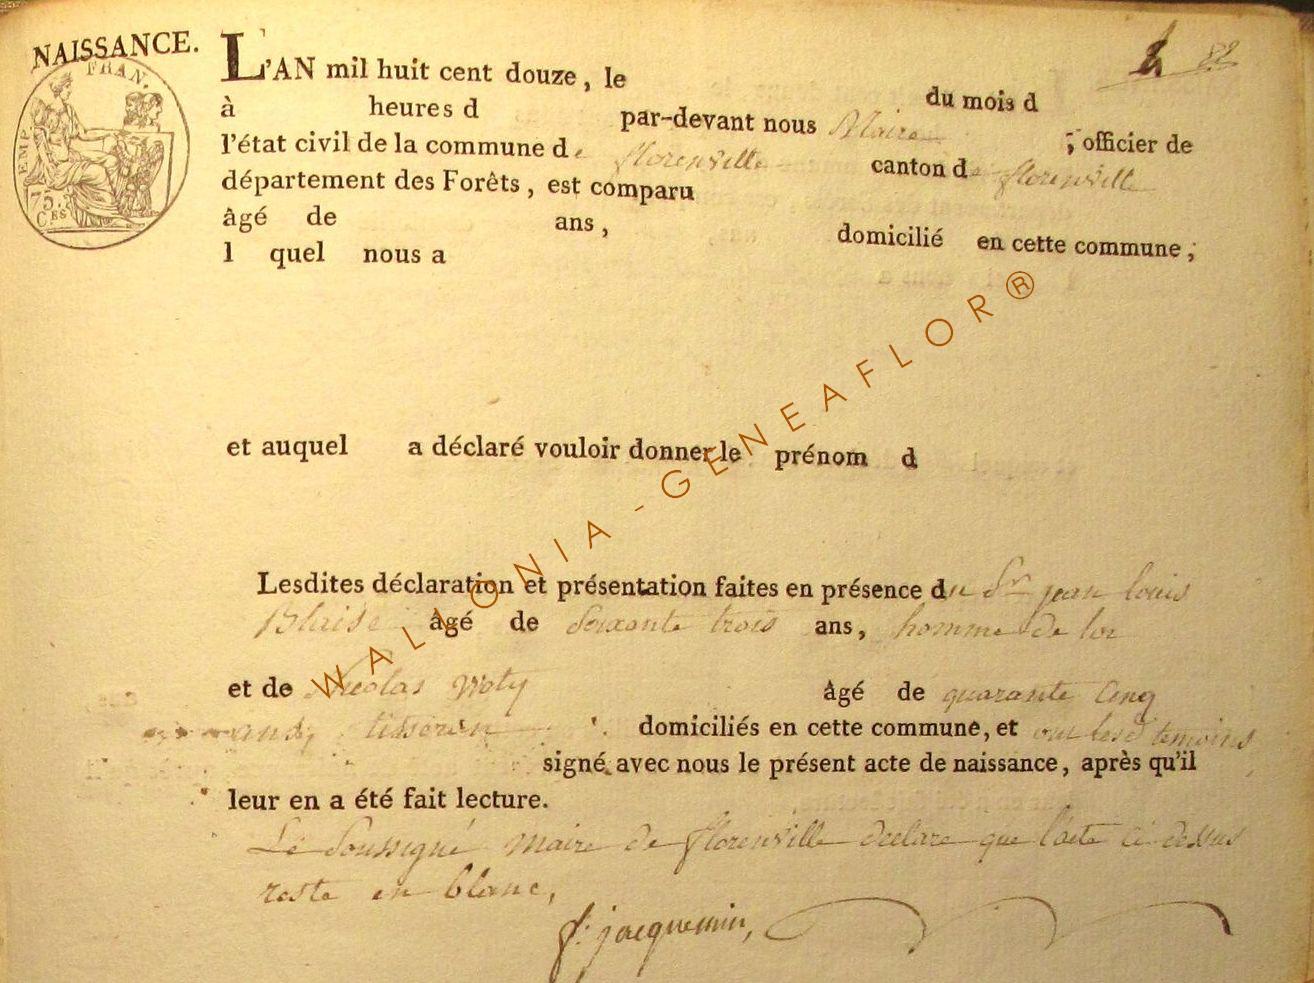 NAISSANCE.
82
EMP. FRAN.
75.
CES
L'AN mil huit cent douze, le du mois d
à heures d par-devant nous Maire ; officier de
l'état civil de la commune de florenville canton de florenville
département des Forêts, est comparu
âgé de ans, domicilié en cette commune;
l quel nous a
et auquel a déclaré vouloir donner le prénom d
Lesdites déclaration et présentation faites en présence du Sr jean louis
Blaise âgé de Soixante trois ans, homme de loi
et de Nicolas âgé de quarante cinq
ans, tisseran domiciliés en cette commune, et ont temoins
signé avec nous le présent acte de naissance, après qu'il
leur en a été fait lecture.
Le Soussigné maire de florenville declare que l'acte ci dessus
reste en blanc,
f. jacquemin,
WALLONIA - GENEAFLOR®